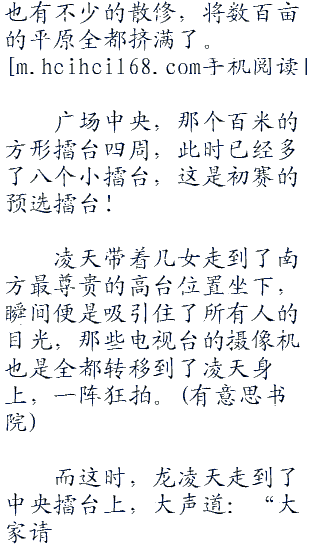 也有不少的散修，将数百亩
的平原全都挤满了。
[m.hcihci168.com手机阅读]
广场中央，那个百米的
方形擂台四周，此时已经多
了八个小擂台，这是初赛的
预选擂台！
凌天带着几女走到了南
方最尊贵的高台位置坐下，
瞬间便是吸引住了所有人的
目光，那些电视台的摄像机
也是全都转移到了凌天身
上，一阵狂拍。(有意思书
院)
而这时，龙凌天走到了
中央擂台上，大声道：“大
家请